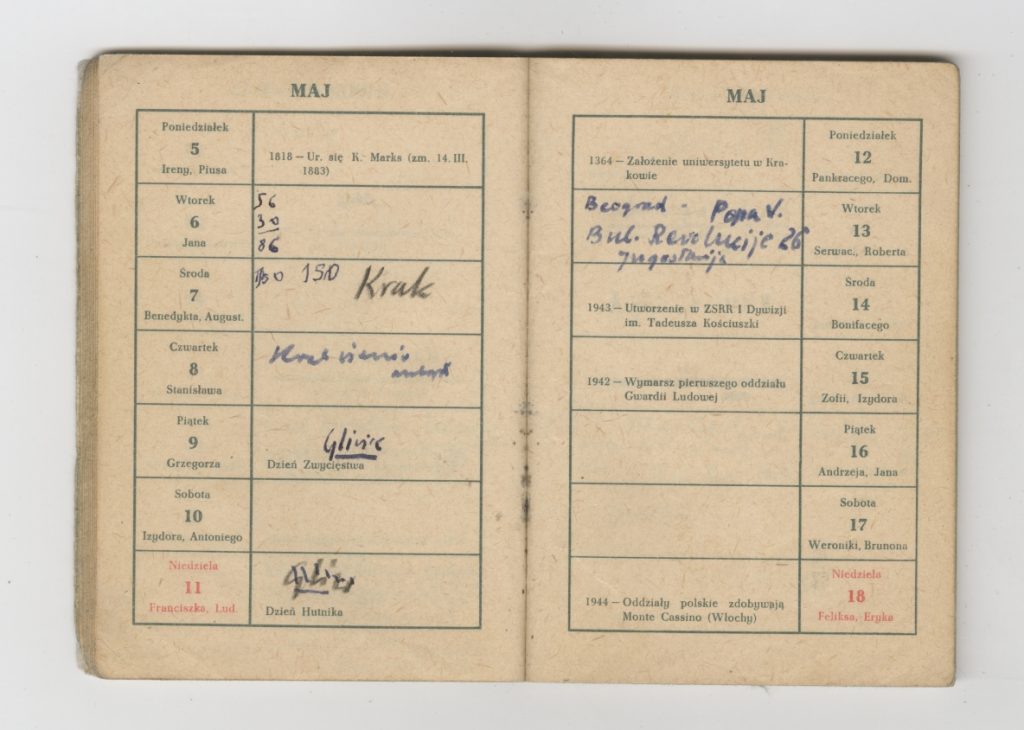 MAJ
Poniedziałek
5
Ireny, Piusa
1818 – Ur. się K. Marks (zm. 14. III.
1883)
Wtorek
6
Jana
56
30
86
Środa
7
Benedykta, August.
150
Krak
Czwartek
8
Stanisława
Piątek
9
Grzegorza
Gliwic
Dzień Zwycięstwa
Sobota
10
Izydora, Antoniego
Niedziela
11
Franciszka, Lud.
Dzień Hutnika
MAJ
1364 – Założenie uniwersytetu w Kra-
kowie
Poniedziałek
12
Pankracego, Dom.
Beograd - Popa V.
Bul. Revolucije 26
Jugoslavija
Wtorek
13
Serwac., Roberta
1943 – Utworzenie w ZSRR I Dywizji
im. Tadeusza Kościuszki
Środa
14
Bonifacego
1942 – Wymarsz pierwszego oddziału
Gwardii Ludowej
Czwartek
15
Zofii, Izydora
Piątek
16
Andrzeja, Jana
Sobota
17
Weroniki, Brunona
1944 – Oddziały polskie zdobywają
Monte Cassino (Włochy)
Niedziela
18
Feliksa, Eryka